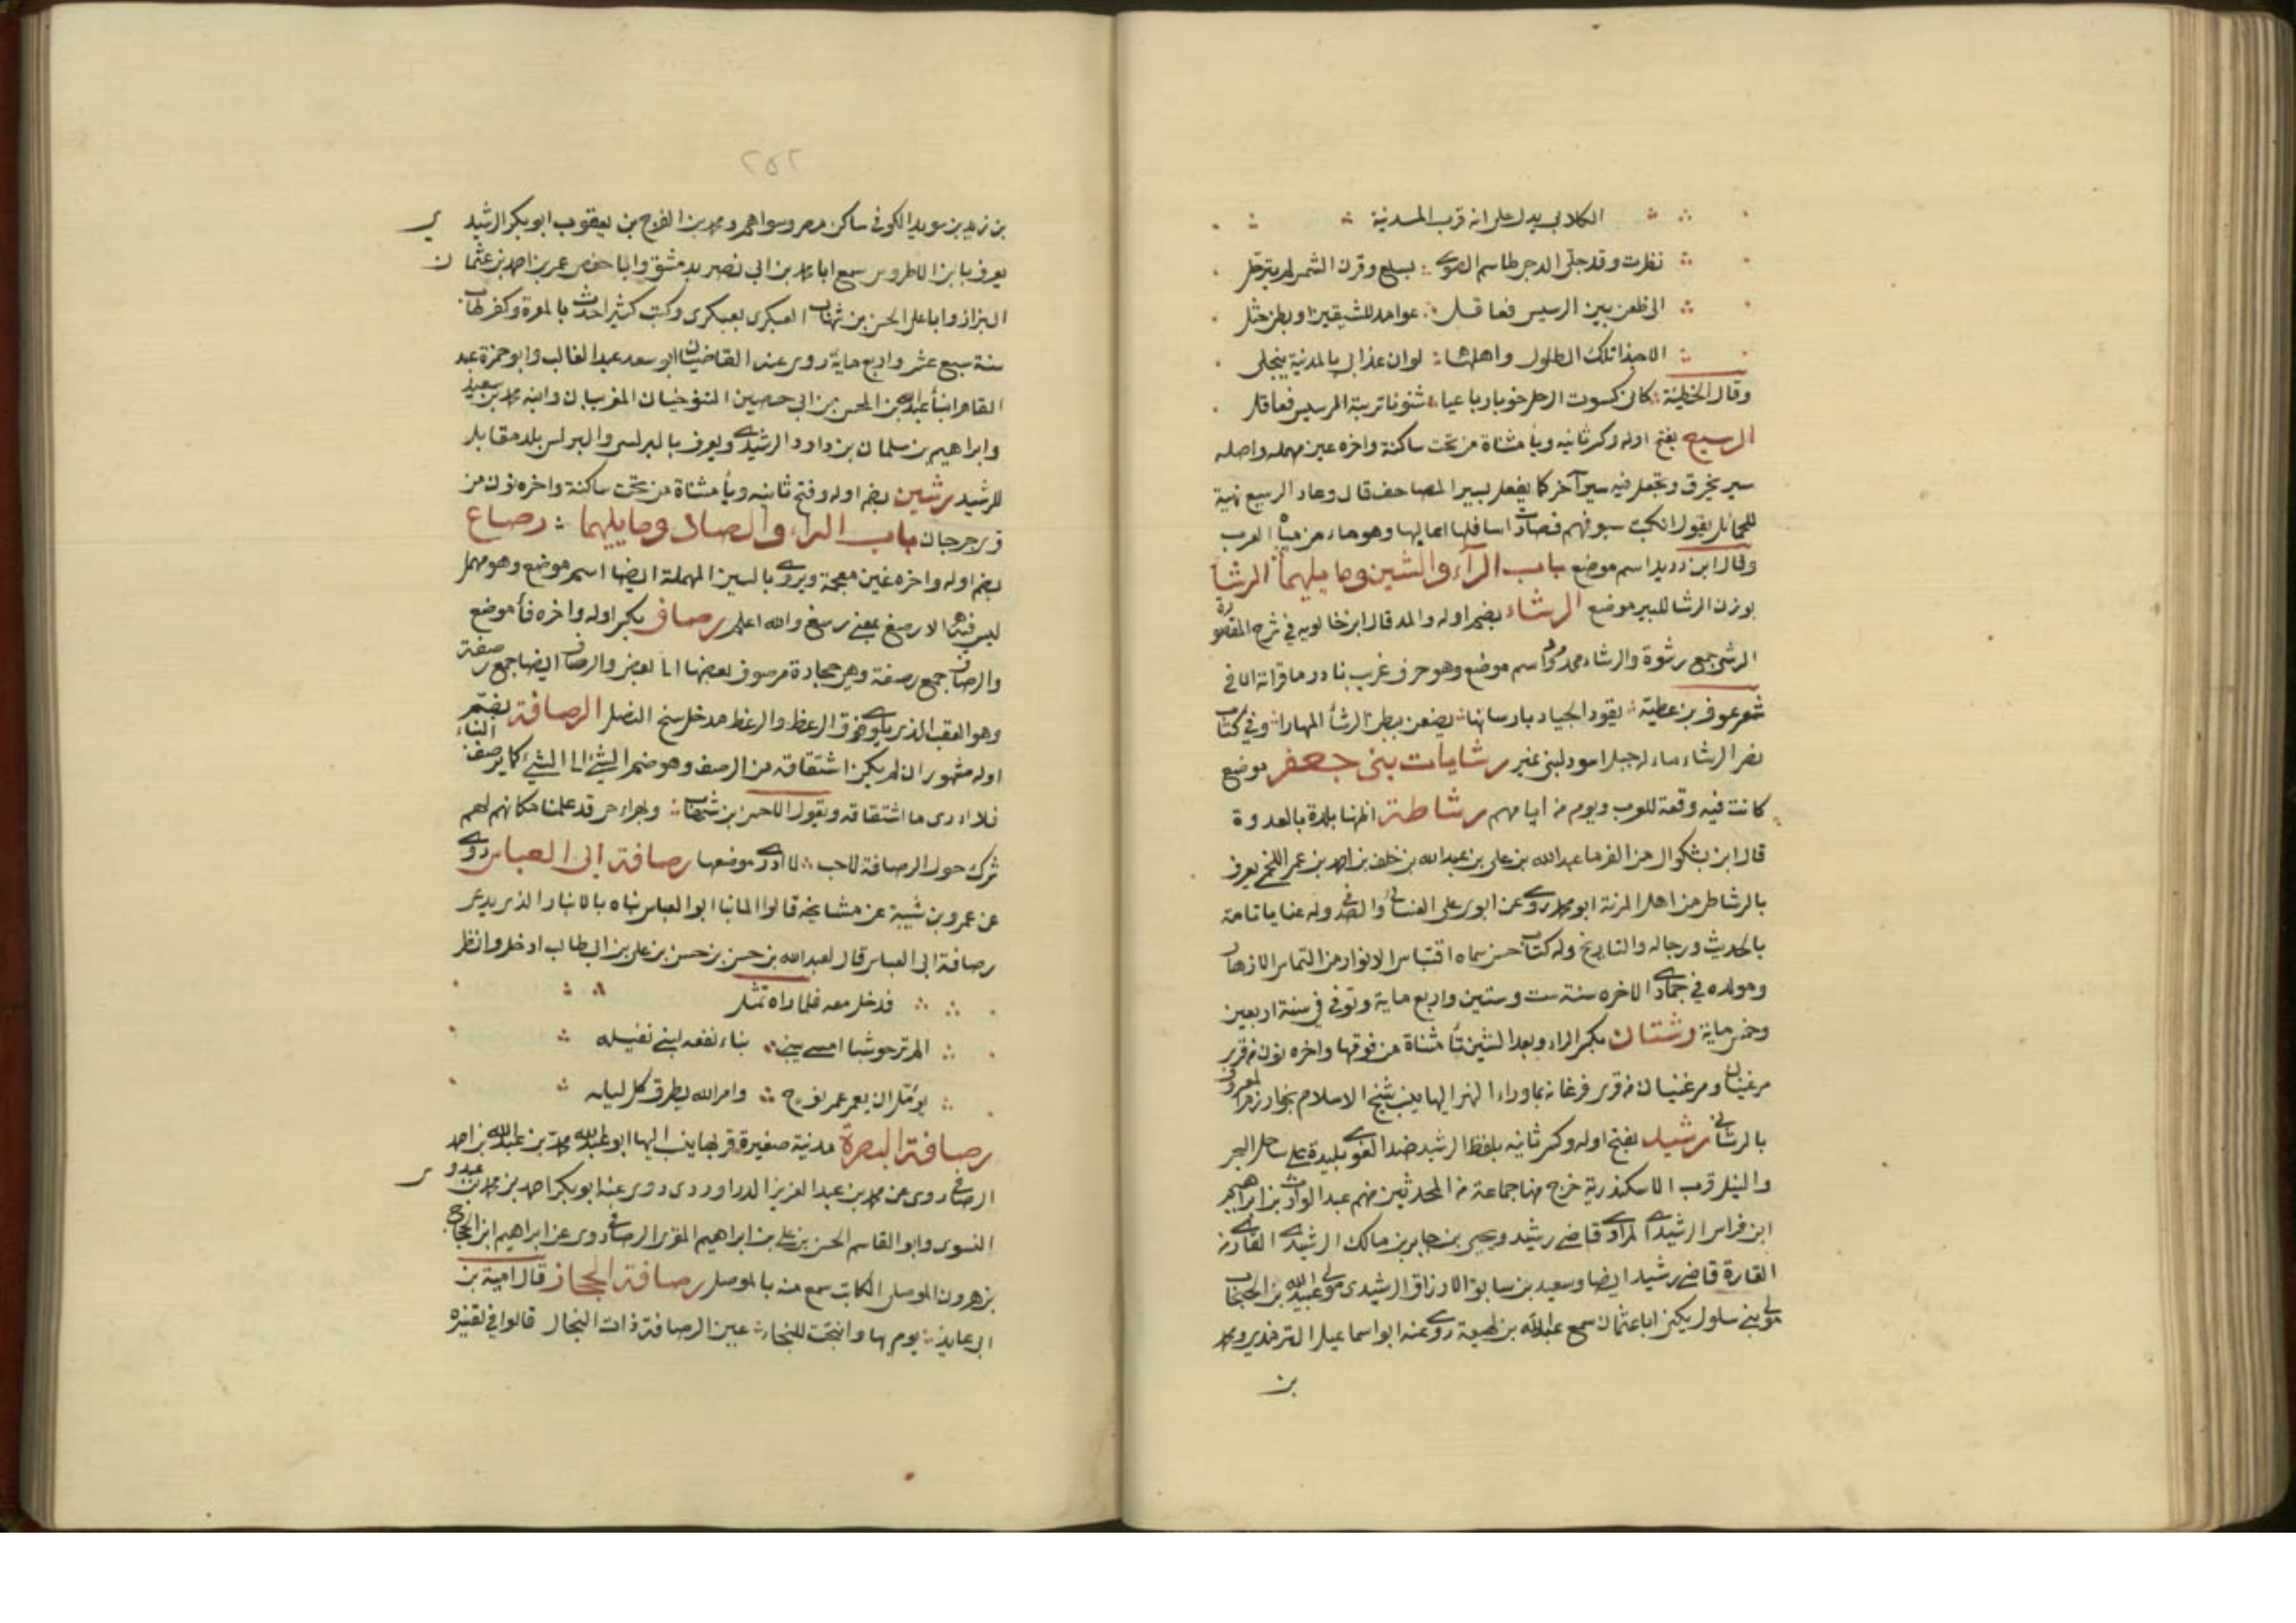 الكلابي يدل على انه قرب المدينة
نظرت وقد جلى الدجى طاسم الصوى بسلع وقرن الشمس لم يترجل
الى ظعن بين الرسيس فعاقل عوامد للشيقين او بطن خثل
الا حبذا تلك الطلول واهلها لو ان عذابي بالمدينة ينجلي
وقال الحطيئة كاني كسوت الرحل جونا رباعيا شنونا تربته الرسيس فعاقل
الرسيع بفتح اوله وكسر ثانيه ويا مثناة من تحت ساكنة واخره عين مهمله واصله
سير يخرق ويجعل فيه سير آخر كما يفعل بسير المصاحف قال وعاد الرسيع نهية
للحمائل يقول انكبت سيوفهم فصارت اسافلها اعاليها وهو ماء من مياه العرب
وقال ابن دريد اسم موضع باب الرآء والشين وما يليهما الرشا
بوزن الرشا للبير موضع الرشاء بضم اوله والمد قال ابن خالويه في شرح المقصورة
الرشى جمع رشوة والرشاء ممدود اسم موضع وهو حرف غريب نادر ما قراته الا في
شعر عوف بن عطية يقود الجياد بارسانها يضعن ببطن الرشأ المهارا وفي كتاب
نصر الرشاء ماء له جبل اسود لبني نمير رشايات بني جعفر موضع
كانت فيه وقعة للعرب ويوم من ايامهم رشاطة اظنها بلدة بالعدوة
قال ابن بشكوال من الفرضا عبد الله بن علي بن عبد الله بن خلف بن احمد بن عمر اللخمي يعرف
بالرشاطي من اهل المرية ابو محمد روى عن ابوي علي الغساني والصدفي وله عنايا تامة
بالحديث ورجاله والتاريخ وله كتاب حسن سماه اقتباس الانوار من التماس الازهار
ومولده في جمادى الاخره سنة ست وستين واربع ماية وتوفي في سنة اربعين
وخمس ماية رشتان بكسر الراء وبعد الشين تأ مثناة من فوقها واخره نون من قرى
مرغينان ومرغينان من قرى فرغانة بما وراء النهر اليها ينسب شيخ الاسلام بخوارزم المعروف
بالرشتاني رشيد بفتح اوله وكسر ثانيه بلفظ الرشيد ضد الغوي بليدة على ساحل البحر
والنيل قرب الاسكندرية خرج منها جماعة من المحدثين منهم عبد الوارث بن ابراهيم
ابن فراس الرشيدي المرادي قاضي رشيد ويحيى بن جابر بن مالك الرشيدي القاري من
القارة قاضي رشيد ايضا وسعيد بن سابق الازراق الرشيدي مولى عبيد الله بن الحبحاب
مولى بني سلول يكنى ابا عثمان سمع عبد الله بن لهيعة روى عنه ابو اسماعيل الترمذي ومحمد
بن
٢٥٢
بن زيد بن سويد الكوفي ساكن مصر وسواهم ومحمد بن الفرج بن يعقوب ابو بكر الرشيدي
يعرف بابن الاطروس سمع ابا محمد بن ابي نصر بدمشق وابا حفص عمر بن احمد بن عثمان
البزاز وابا علي الحسن بن شهاب العكبري بعكبرى وكتب كثيرا حدث بالمعرة وكفرطاب
سنة سبع عشر واربع ماية روى عنه القاضيان ابو سعد عبد الغالب وابو حمزة عبد
القاهر ابنا عبد الله بن المحسن بن ابي حصين التنوخيان المغربيان وابنه محمد بن سعيد
وابراهيم بن سلمان بن داود الرشيدي ويعرف بالبرلسي والبرلس بلد مقابل
للرشيد رشين بضم اوله وفتح ثانيه ويأ مثناة من تحت ساكنة واخره نون من
قرى جرجان باب الراء والصاد وما يليهما رصاغ
بضم اوله واخره غين معجمة ويروى بالسين المهملة ايضا اسم موضع وهو مهمل
ليس فيه الا رصغ بمعنى رسغ والله اعلم رصاف بكسر اوله واخره فأ موضع
والرصاف جمع رصفة وهي حجارة مرصوف بعضها الى بعض والرصاف ايضا جمع رصفة
وهو العقب الذي يلوى فوق الرعظ والرعظ مدخل سنخ النصل الرصافة بضم
اوله مشهور ان لم يكن اشتقاقه من الرصف وهو ضم الشئ الى الشئ كما يرصف البناء
فلا ادرى ما اشتقاقه ويقول اللاحس بن شهاب وبهراء حي قد علمنا مكانهم لهم
شرك حول الرصافة لاحب لا ادري موضعها رصافة ابي العباس روى
عن عمرو بن شيبة عن مشايخه قالوا لما بنا ابو العباس بناه بالانبار الذي يدعى
رصافة ابي العباس قال لعبد الله بن حسن بن حسن بن علي بن ابي طالب ادخل وانظر
فدخل معه فلما راه تمثل
الم تر حوشبا امسى يبني بناء نفعه لبني نفيله
يؤمل ان يعمر عمر نوح وامر الله يطرق كل ليله
رصافة البصرة مدينة صغيرة قربها ينسب اليها ابو عبد الله محمد بن عبد الله بن احمد
الرصافي روى عن محمد بن عبد العزيز الدراوردى روى عنه ابو بكر احمد بن محمد بن عبدوس
النسوى وابو القاسم الحسن بن علي بن ابراهيم المقرى الرصافي روى عن ابراهيم ابن الحجاج
بن هرون الموصلي الكاتب سمع منه بالموصل رصافة الحجاز قال امية بن
ابي عايذ يوم بها وانتحت للنجاء عين الرصافة ذات النجال قالوا في تفسيره